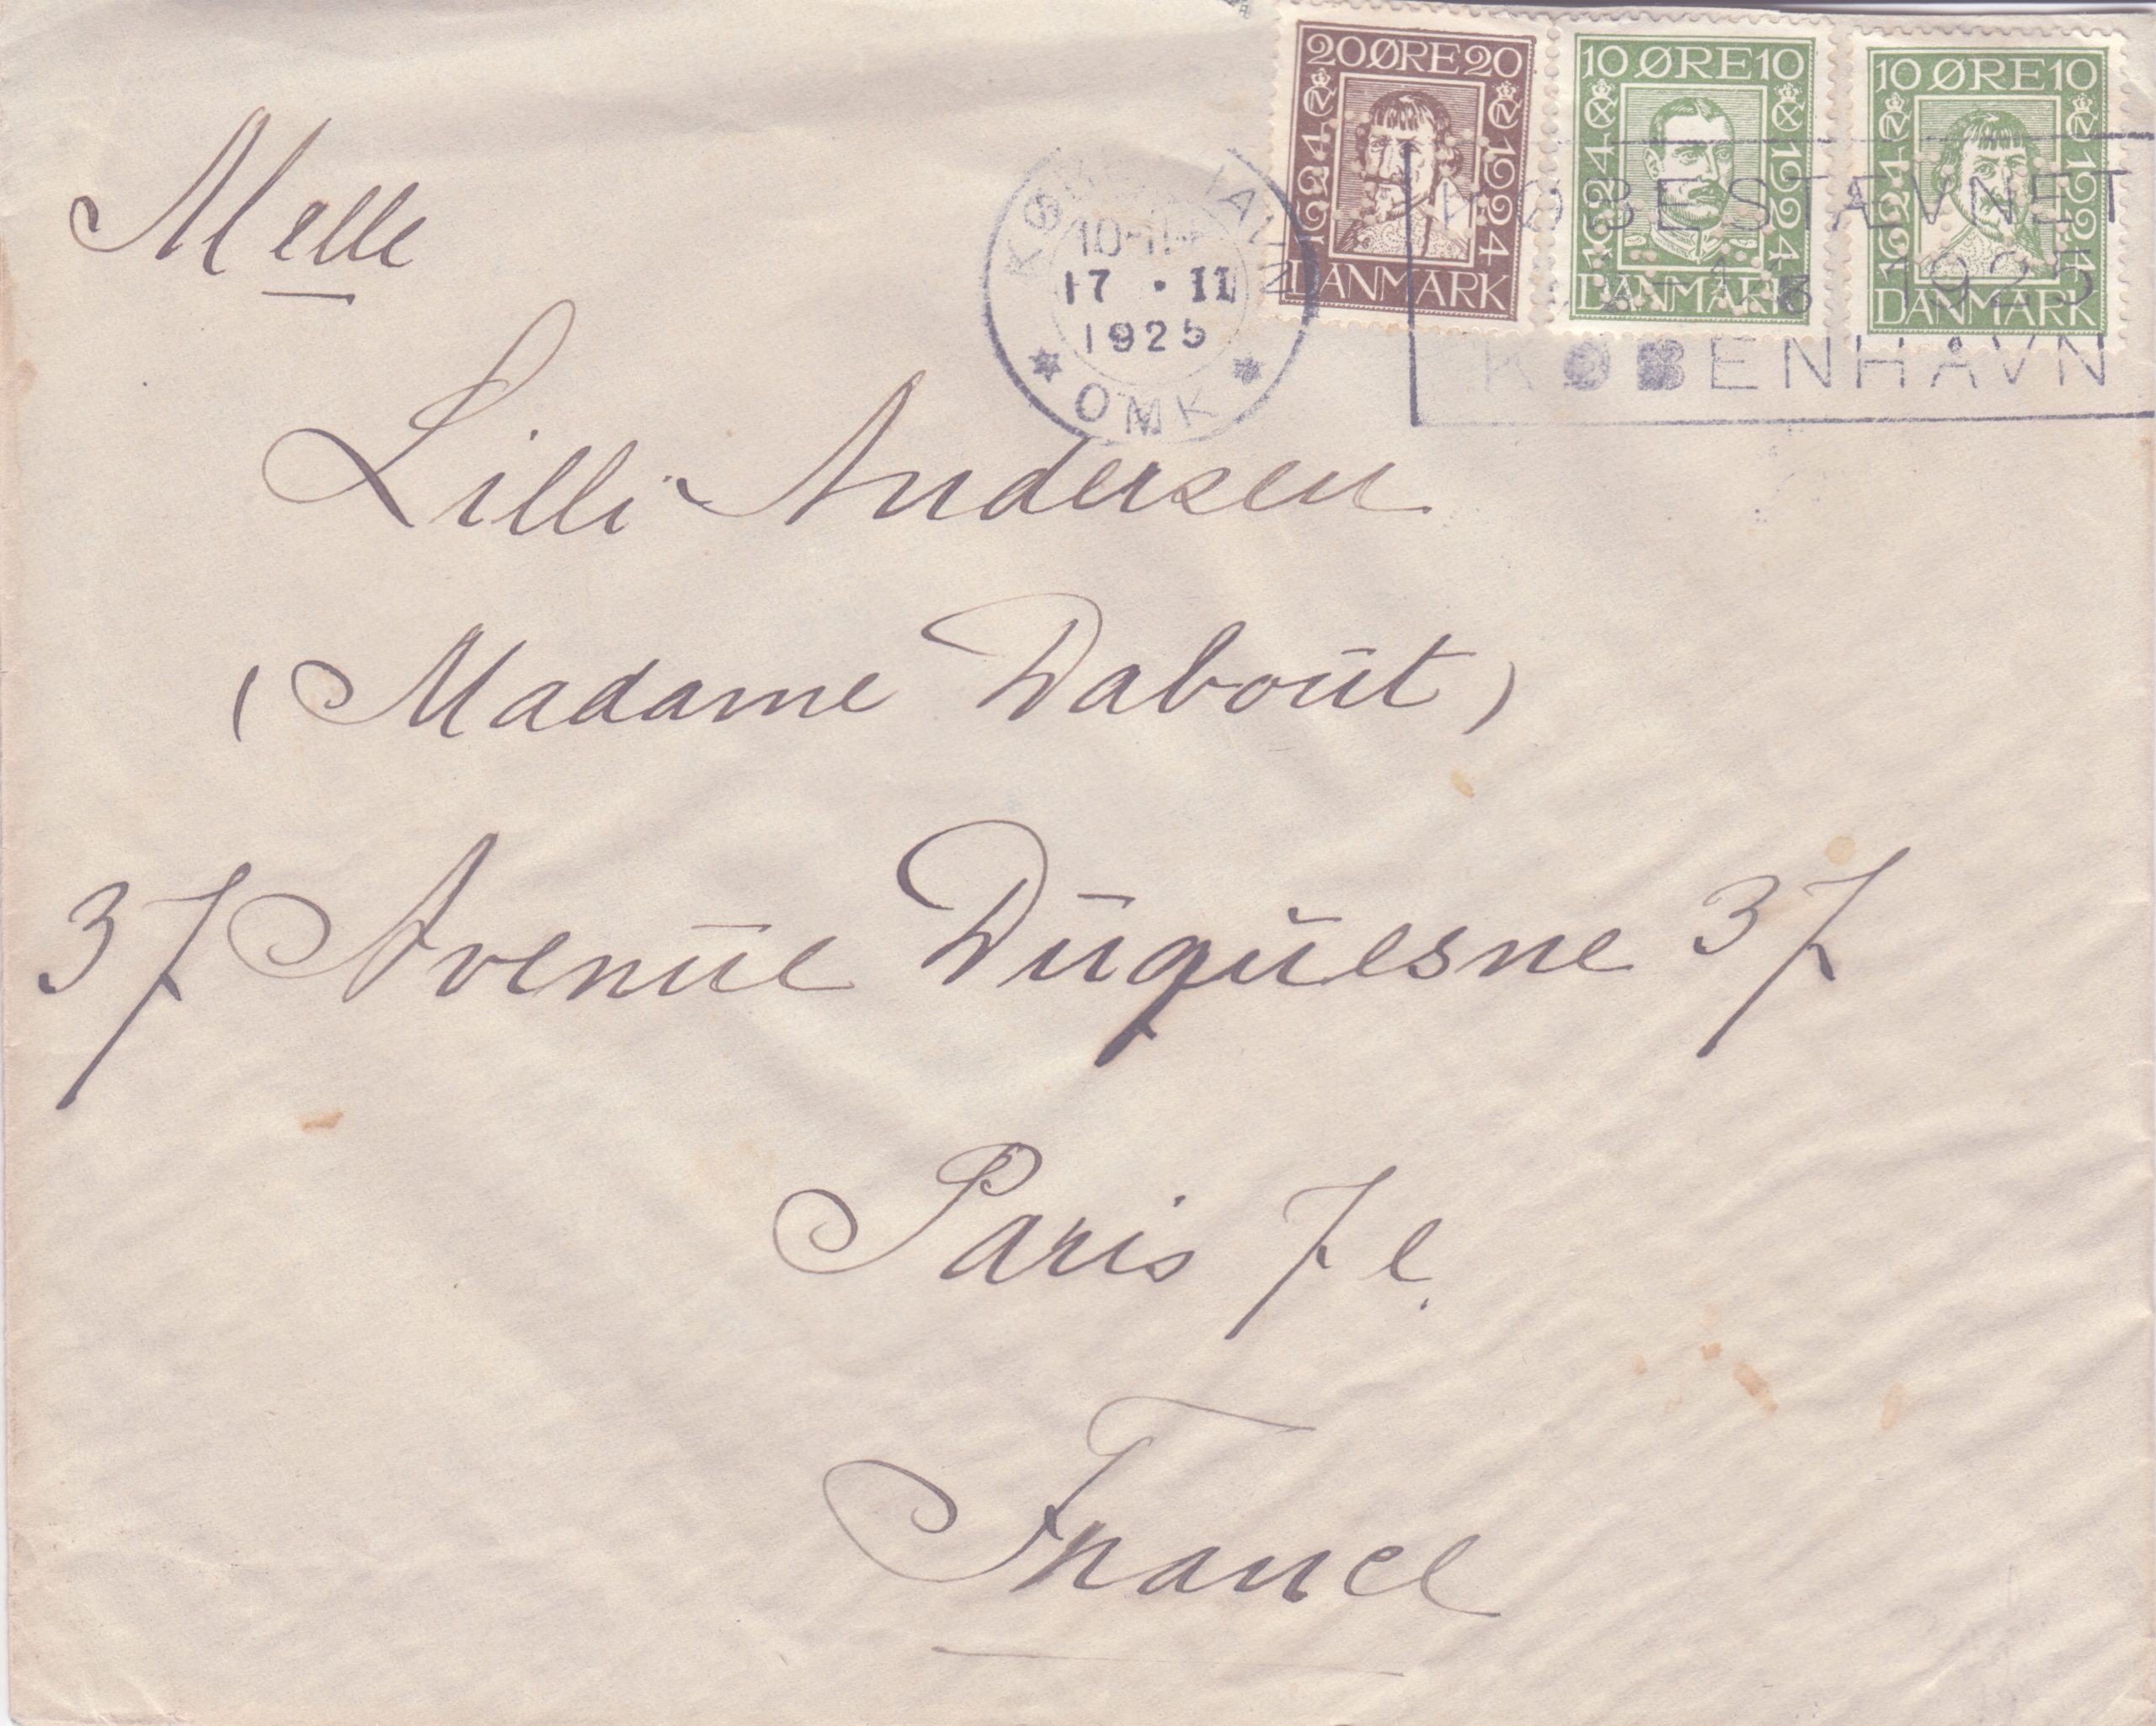 20 ØRE 20
1624 1924
DANMARK
10 ØRE 10
1624 1924
DANMARK
10 ØRE 10
1624 1924
DANMARK
KØBENHAVN
17 • II
1925
OMK
KØBESTÆVNET
1925
KØBENHAVN
Melle
Lilli Andersen
(Madame Daboūt)
37 Avenūe Dūqūesne 37
Paris 7 e.
France